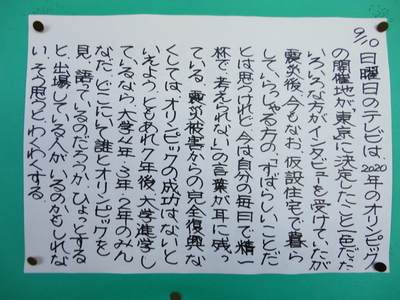 9/10 日曜日のテレビは、2020年のオリンピック
の開催地が、「東京」に決定したこと一色だった
いろいろな方がインタビューを受けていたが
震災後、今もなお、仮設住宅で暮ら
していらっしゃる方の、「すばらしいことだ
とは思うけれど、今は自分の毎日で、精一
杯で、考えられない」の言葉が耳に残っ
ている。震災被害からの完全復興な
くしては、オリンピックの成功はないと
いえよう。ともあれ、7年後、大学進学し
ているなら、大学4年・3年・2年のみん
なだ。どこにいて、誰とオリンピックを
見、語っているのだろうか。ひょっとする
と、出場している人がいるのかもしれな
い。そう思うと、わくわくする。